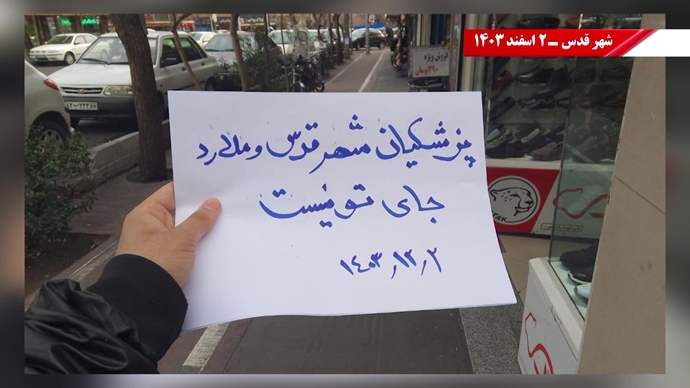 شهر قدس ــ ۲ اسفند ۱۴۰۳
پزشکیان شهر قدس و ملارد
جای تو نیست
۱۴۰۳٫۱۲٫۲
فروش ویژه